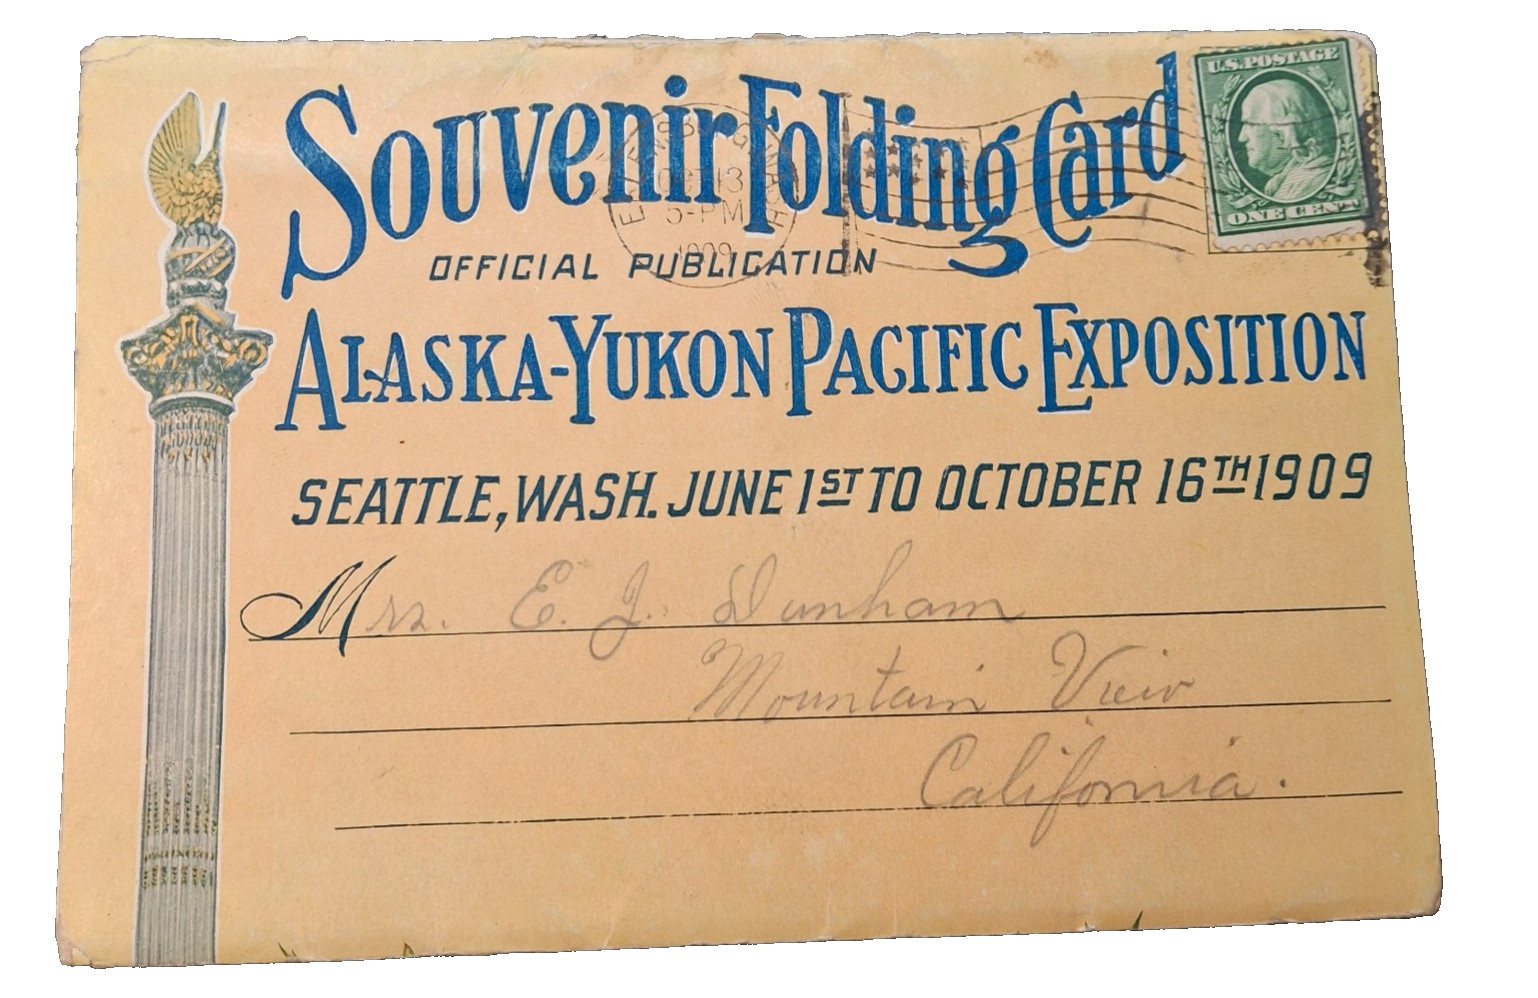 Souvenir Folding Card
U.S. POSTAGE
ONE CENT
OCT 13
5-PM
1909
OFFICIAL PUBLICATION
ALASKA-YUKON PACIFIC EXPOSITION
SEATTLE, WASH. JUNE 1ST TO OCTOBER 16TH 1909
Mrs. E. J. Dunham
Mountain View
California.